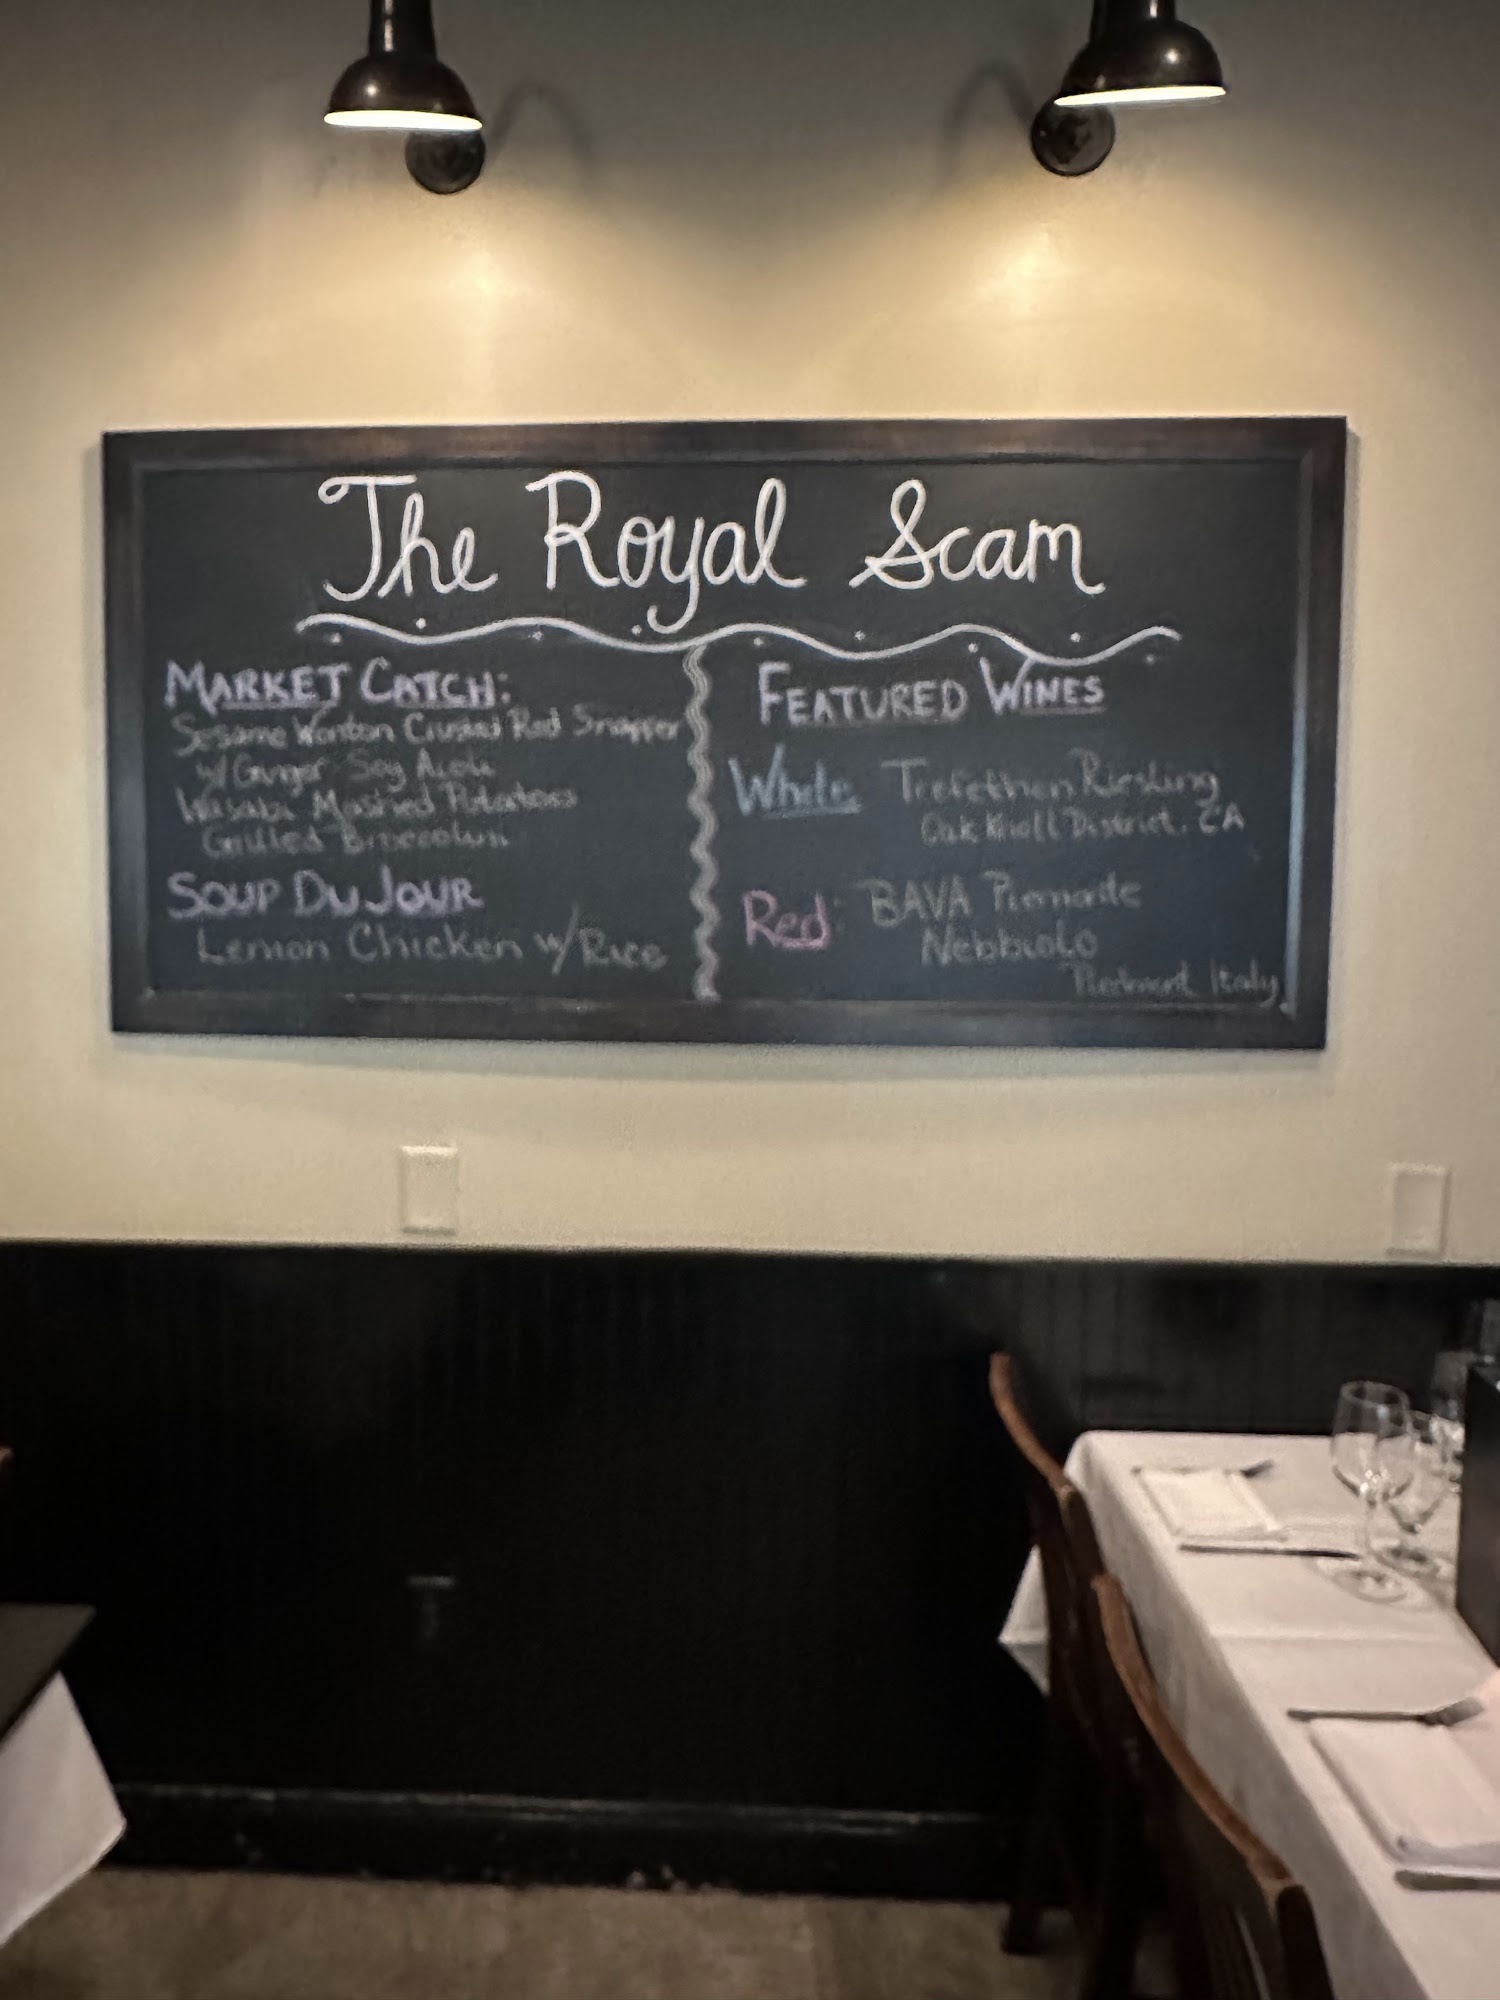 The Royal Scam
MARKET CATCH:
Sesame Wonton Crusted Red Snapper
w/ Ginger Soy Aioli
Wasabi Mashed Potatoes
Grilled Broccolini
SOUP DU JOUR
Lemon Chicken w/ Rice
FEATURED WINES
White Trefethen Riesling
Oak Knoll District, CA
Red: BAVA
Nebbiolo
Piedmont Italy